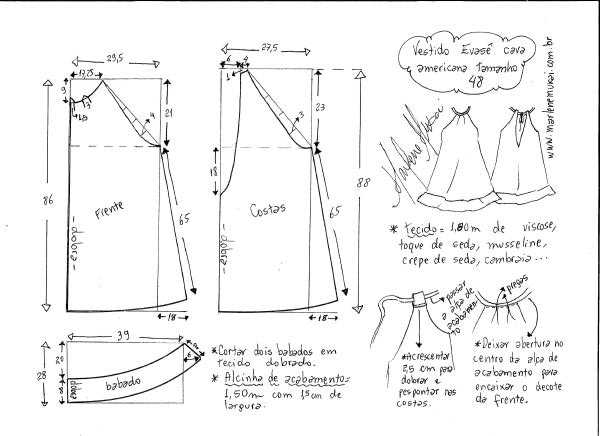 29,5
17,25
9
7
1,5
4
21
86
Frente
dobra
65
18
27,5
6
4
1
3
23
18
88
Costas
dobra
65
18
Vestido Evasê cava
americana tamanho
48
www.marlenemukai.com.br
Marlene Mukai
* tecido = 1,80m de viscose,
toque de seda, musseline,
crepe de seda, cambraia...
39
20
28
8
6
babado
dobra
*Cortar dois babados em
tecido dobrado.
* Alcinha de acabamento=
1,50m com 15cm de
largura.
passar
a alça de
acabamen
to
*Acrescentar
2,5 cm para
dobrar e
pespontar nas
costas.
pregas
*Deixar abertura no
centro da alça de
acabamento para
encaixar o decote
da frente.